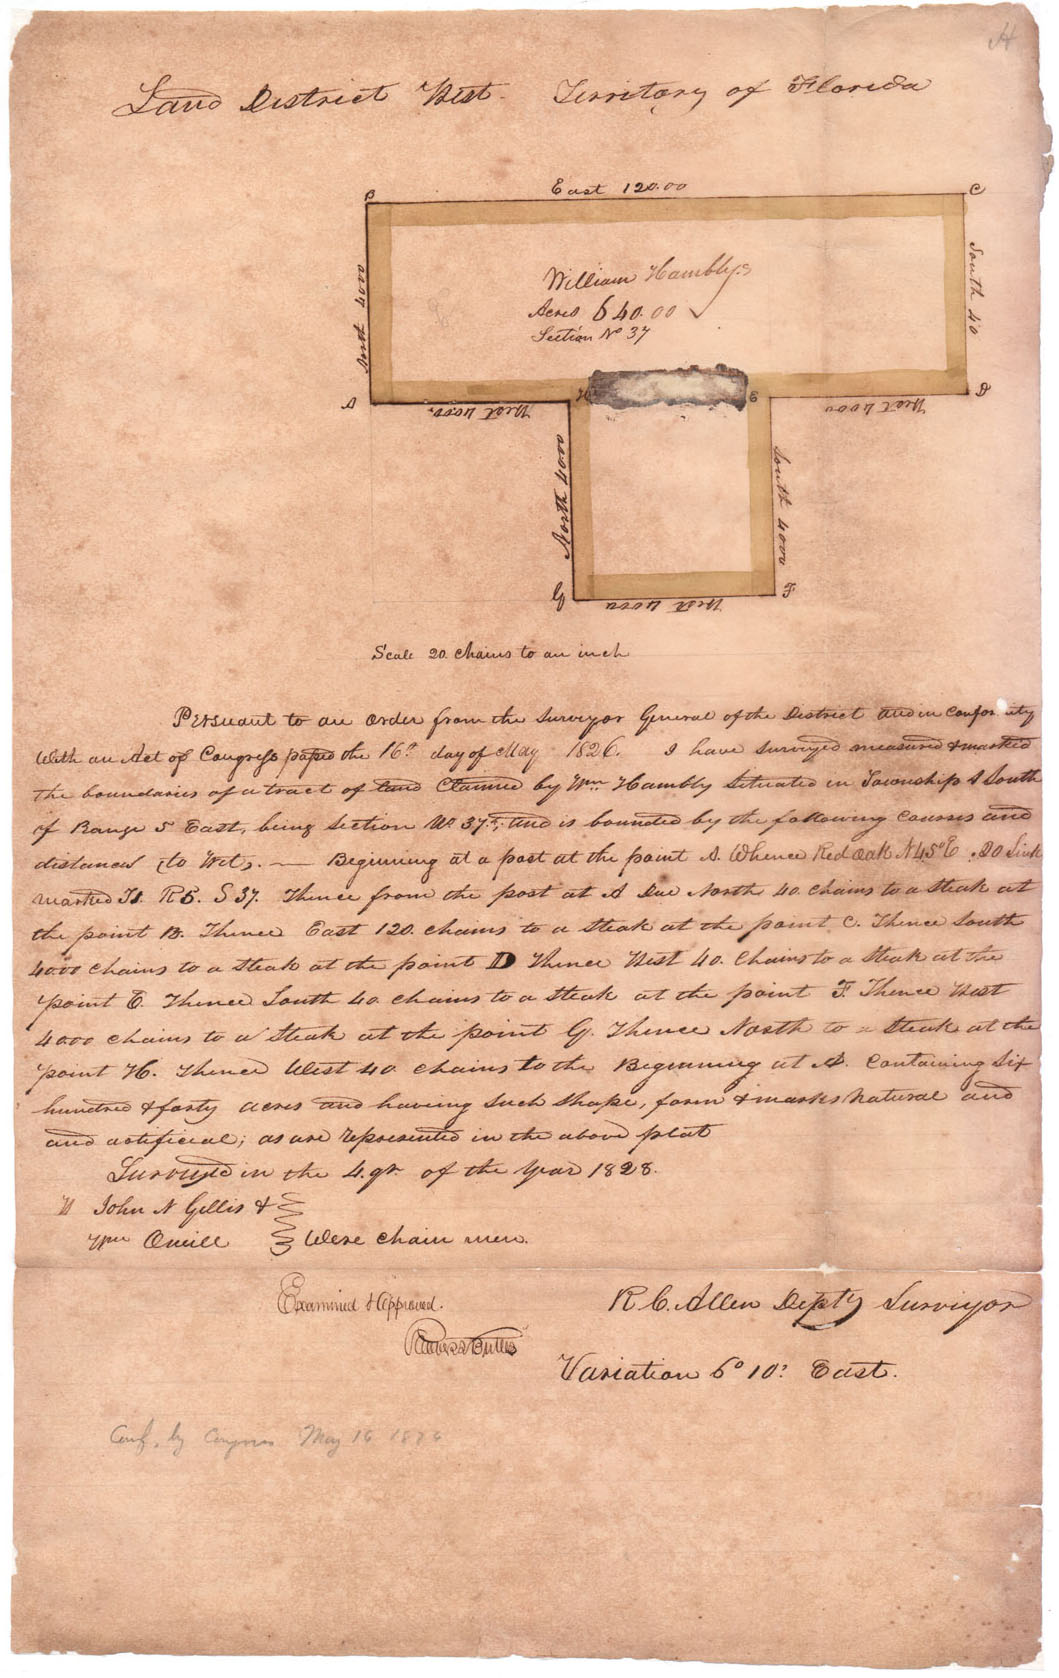 H
Land District West. Territory of Florida
B East 120.00 C
North 4000
South 40
William Hambly's
Acres 640.00
Section No 37
A West 4000. H E West 4000 D
North 4000
South 4000
G West 4000 F
Scale 20 chains to an inch
Persuant to an order from the Surveyor General of the District and in confor ity
With an Act of Congress passed the 16th day of May 1826. I have surveyed measured & marked
the boundaries of a tract of land Claimed by Wm Hambly Situated in Township 1 South
of Range 5 East, being Section No 37; and is bounded by the following Courses and
distances (to Wit). — Beginning at a post at the point A. Whence Red Oak N 45° E .20 Link
marked T1. R5. S 37. Thence from the post at A Due North 40 chains to a Steak at
the point B. Thence East 120 chains to a Steak at the point C. Thence South
4000 chains to a Steak at the point D Thence West 40. Chains to a Steak at the
point E. Thence South 40 chains to a Steak at the point F. Thence West
4000 chains to a Steak at the point G. Thence North to a Steak at the
point H. Thence West 40 chains to the Beginning at A. Containing Six
hundred & forty acres and having such shape, form & marks Natural and
and artificial; as are represented in the above plat
Surveyed in the 4. qr. of the Year 1828.
John N Gillis &
Wm Oneill Were chain men.
Examined & Approved. R C. Allen Depty Surveyor
Robert Butler
Variation 6° 10' East.
Conf. by Congress May 16 1826